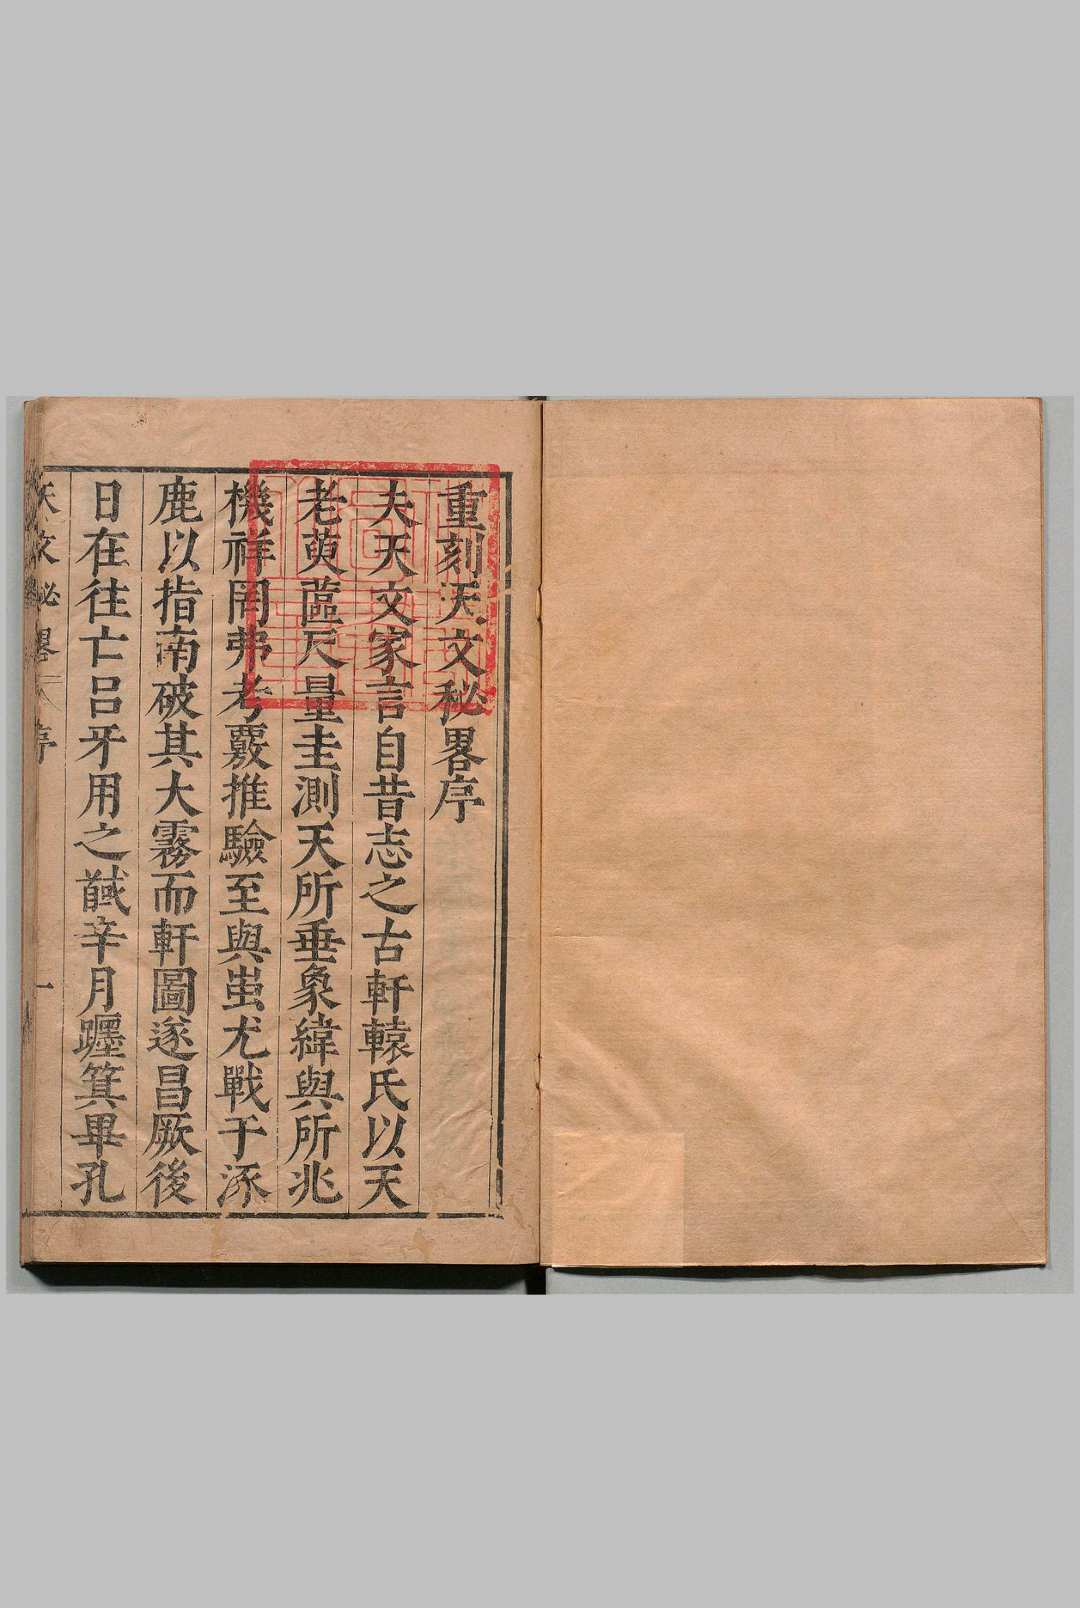 重刻天文秘畧序
夫天文家言自昔志之古軒轅氏以天
老萸蓲尺量圭測天所垂象緯與所兆
機祥罔弗考覈推驗至與蚩尤戰于涿
鹿以指南破其大霧而軒圖遂昌厥後
日在往亡呂牙用之馘辛月躔箕畢孔
天文秘畧 序 一